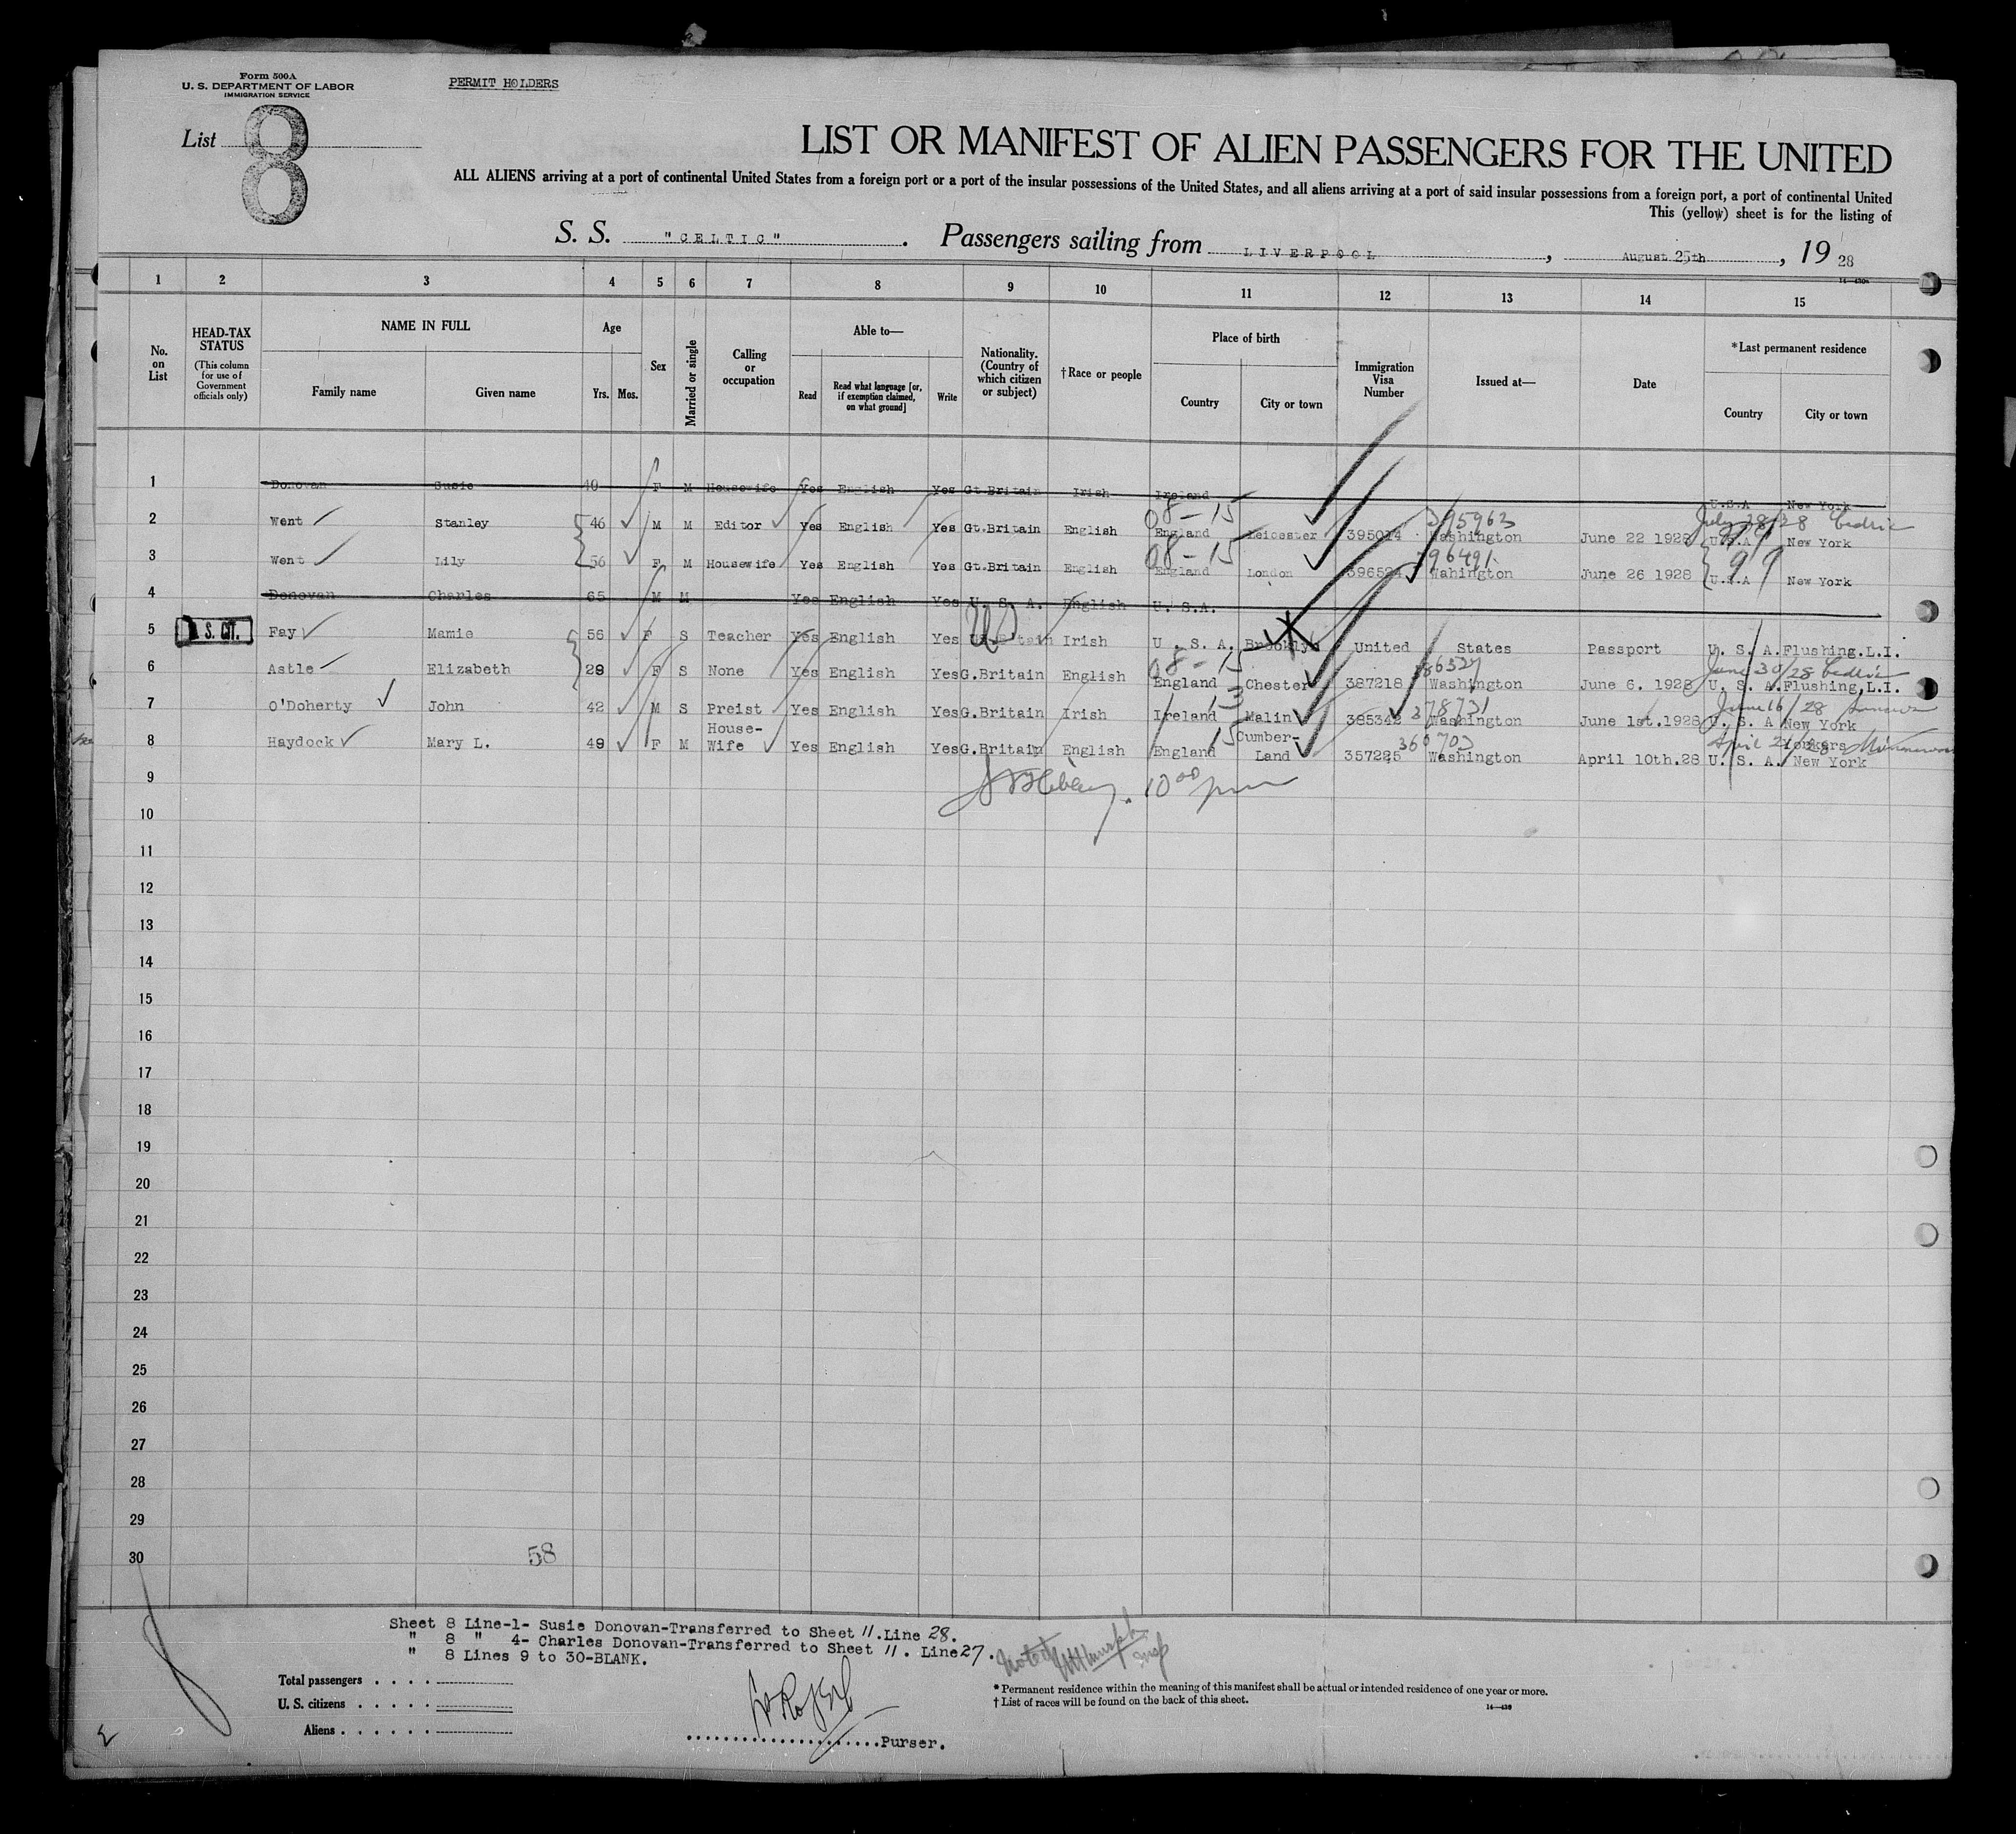 Form 500A
U. S. DEPARTMENT OF LABOR
IMMIGRATION SERVICE
PERMIT HOLDERS
List 8
LIST OR MANIFEST OF ALIEN PASSENGERS FOR THE UNITED
ALL ALIENS arriving at a port of continental United States from a foreign port or a port of the insular possessions of the United States, and all aliens arriving at a port of said insular possessions from a foreign port, a port of continental United
This (yellow) sheet is for the listing of
S. S. "CELTIC". Passengers sailing from LIVERPOOL, August 25th, 19 28
14—430
1 2 3 4 5 6 7 8 9 10 11 12 13 14 15
No. on List
HEAD-TAX STATUS
(This column for use of Government officials only)
NAME IN FULL
Family name Given name
Age
Yrs. Mos.
Sex
Married or single
Calling or occupation
Able to—
Read
Read what language [or, if exemption claimed, on what ground]
Write
Nationality. (Country of which citizen or subject)
†Race or people
Place of birth
Country City or town
Immigration Visa Number
Issued at—
Date
*Last permanent residence
Country City or town
1 Donovan Susie 40 F M Housewife Yes English Yes Gt.Britain Irish Ireland U.S.A New York
08-15 395963 July 28/28 Cedric
2 Went Stanley 46 M M Editor Yes English Yes Gt.Britain English England Leicester 395014 Washington June 22 1928 U.S.A New York
08-15 396491
3 Went Lily 56 F M Housewife Yes English Yes Gt.Britain English England London Wahington June 26 1928 U.S.A New York
4 Donovan Charles 65 M M Yes English Yes U. S. A. English U. S.A.
5 U. S. CIT. Fay Mamie 56 F S Teacher Yes English Yes US Irish U. S. A. Brooklyn United States Passport U. S. A. Flushing.L.I.
08-15 386327 June 30/28 Cedric
6 Astle Elizabeth 29 F S None Yes English Yes G.Britain English England Chester 387218 Washington June 6. 1928 U. S. A. Flushing,L.I.
13 378731 June 16/28
7 O'Doherty John 42 M S Preist Yes English Yes G.Britain Irish Ireland Malin 385342 Washington June 1st.1928 U. S. A New York
15 360703 April 21/28 Yonkers
8 Haydock Mary L. 49 F M House-Wife Yes English Yes G.Britain English England Cumber-Land 357225 Washington April 10th.28 U. S. A. New York
10 00 pm
9
10
11
12
13
14
15
16
17
18
19
20
21
22
23
24
25
26
27
28
29
30
58
Sheet 8 Line-1- Susie Donovan-Transferred to Sheet 11.Line 28.
" 8 " 4- Charles Donovan-Transferred to Sheet 11. Line 27.
" 8 Lines 9 to 30-BLANK.
Noted
Total passengers . . . .
U. S. citizens . . . . .
Aliens . . . . . .
Purser.
* Permanent residence within the meaning of this manifest shall be actual or intended residence of one year or more.
† List of races will be found on the back of this sheet.
14—430